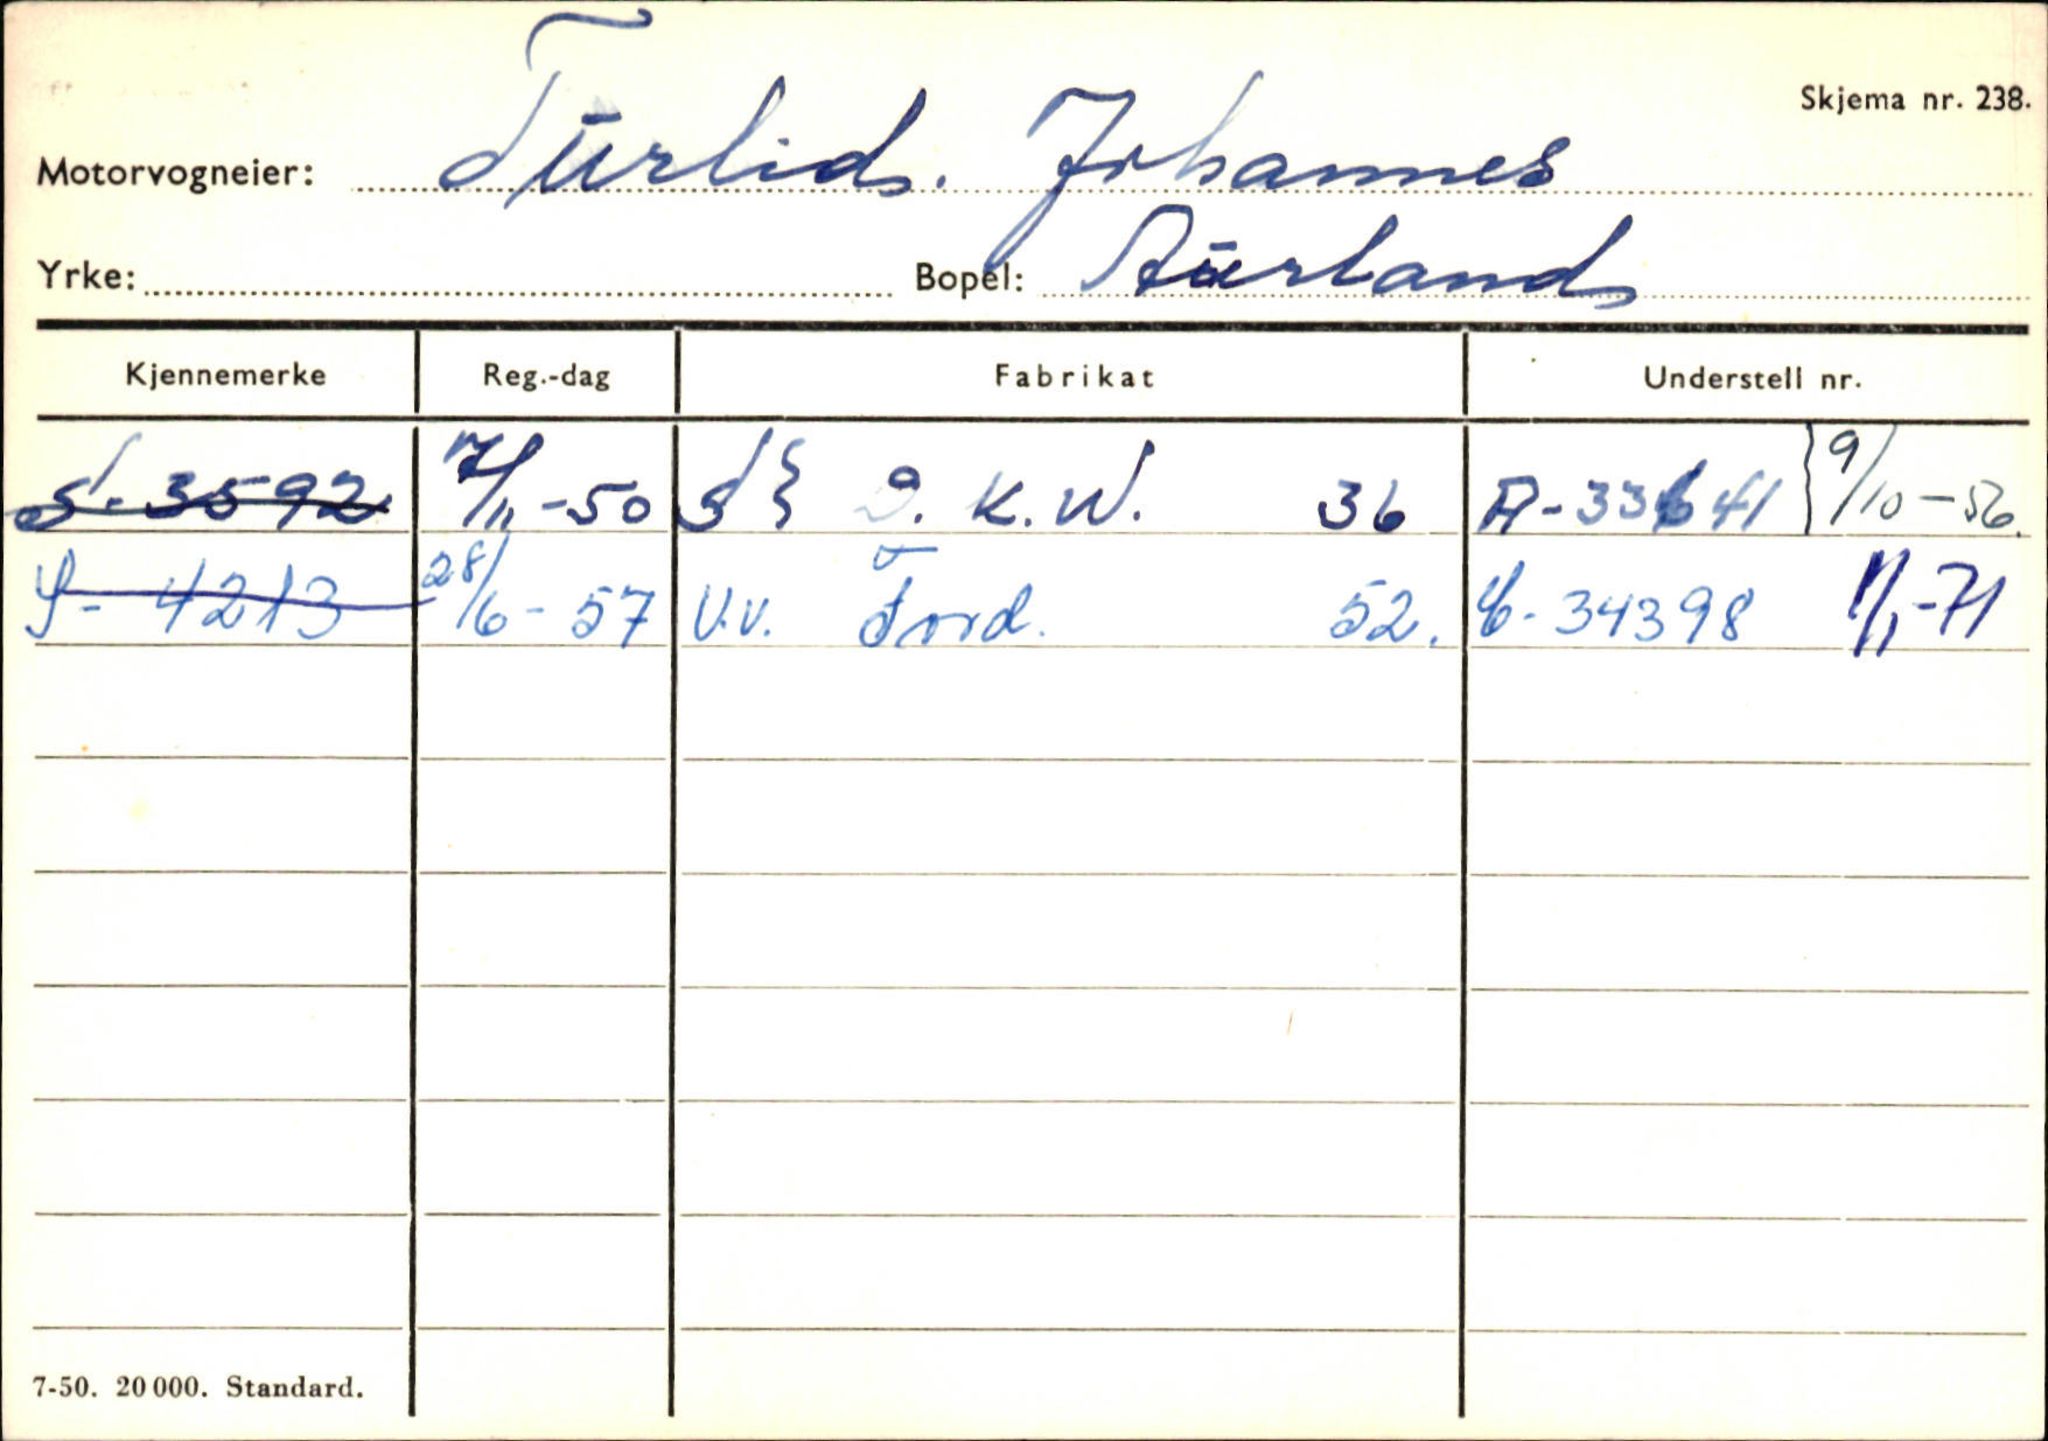 Skjema nr. 238.
Motorvogneier: Turlid. Johannes
Yrke: Bopel: Aurland
Kjennemerke Reg.-dag Fabrikat Understell nr.
S-3592 7/11-50 S} D.K.W. 36 A-33641 }9/10-56.
S-4213 28/6-57 V.V. Ford. 52. C-34398 1/1-71
7-50. 20 000. Standard.